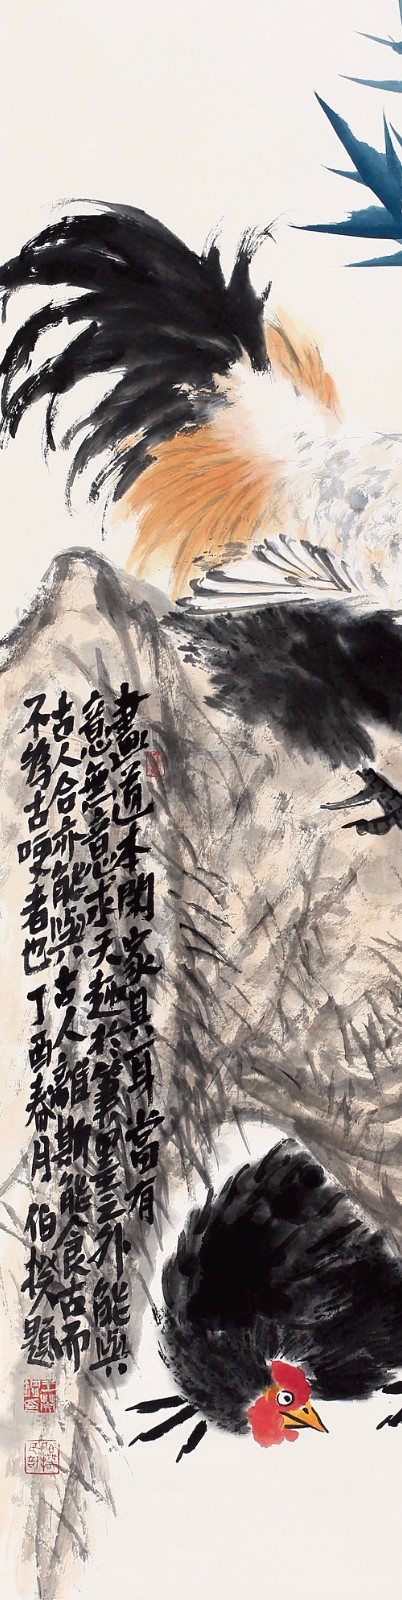 畫道本閑家具耳當有
意無意求天趣於筆墨之外能與
古人合亦能與古人離斯能食古而
不為古哽者也丁酉春月伯揆題